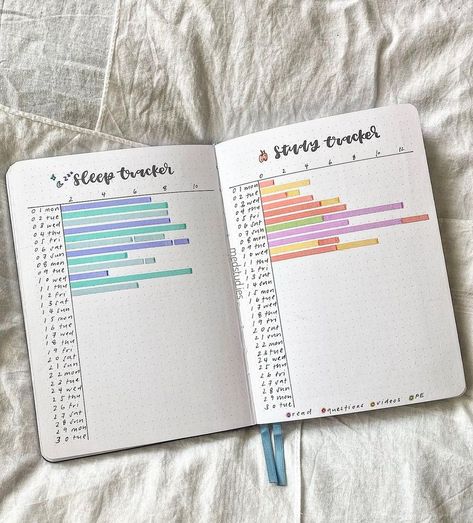 sleep tracker
2 4 6 8 10
01 mon
02 tue
03 wed
04 thu
05 fri
06 sat
07 sun
08 mon
09 tue
10 wed
11 thu
12 fri
13 sat
14 sun
15 mon
16 tue
17 wed
18 thu
19 fri
20 sat
21 sun
22 mon
23 tue
24 wed
25 thu
26 fri
27 sat
28 sun
29 mon
30 tue
study tracker
0 2 4 6 8 10 12
01 mon
02 tue
03 wed
04 thu
05 fri
06 sat
07 sun
08 mon
09 tue
10 wed
11 thu
12 fri
13 sat
14 sun
15 mon
16 tue
17 wed
18 thu
19 fri
20 sat
21 sun
22 mon
23 tue
24 wed
25 thu
26 fri
27 sat
28 sun
29 mon
30 tue
read questions videos PE